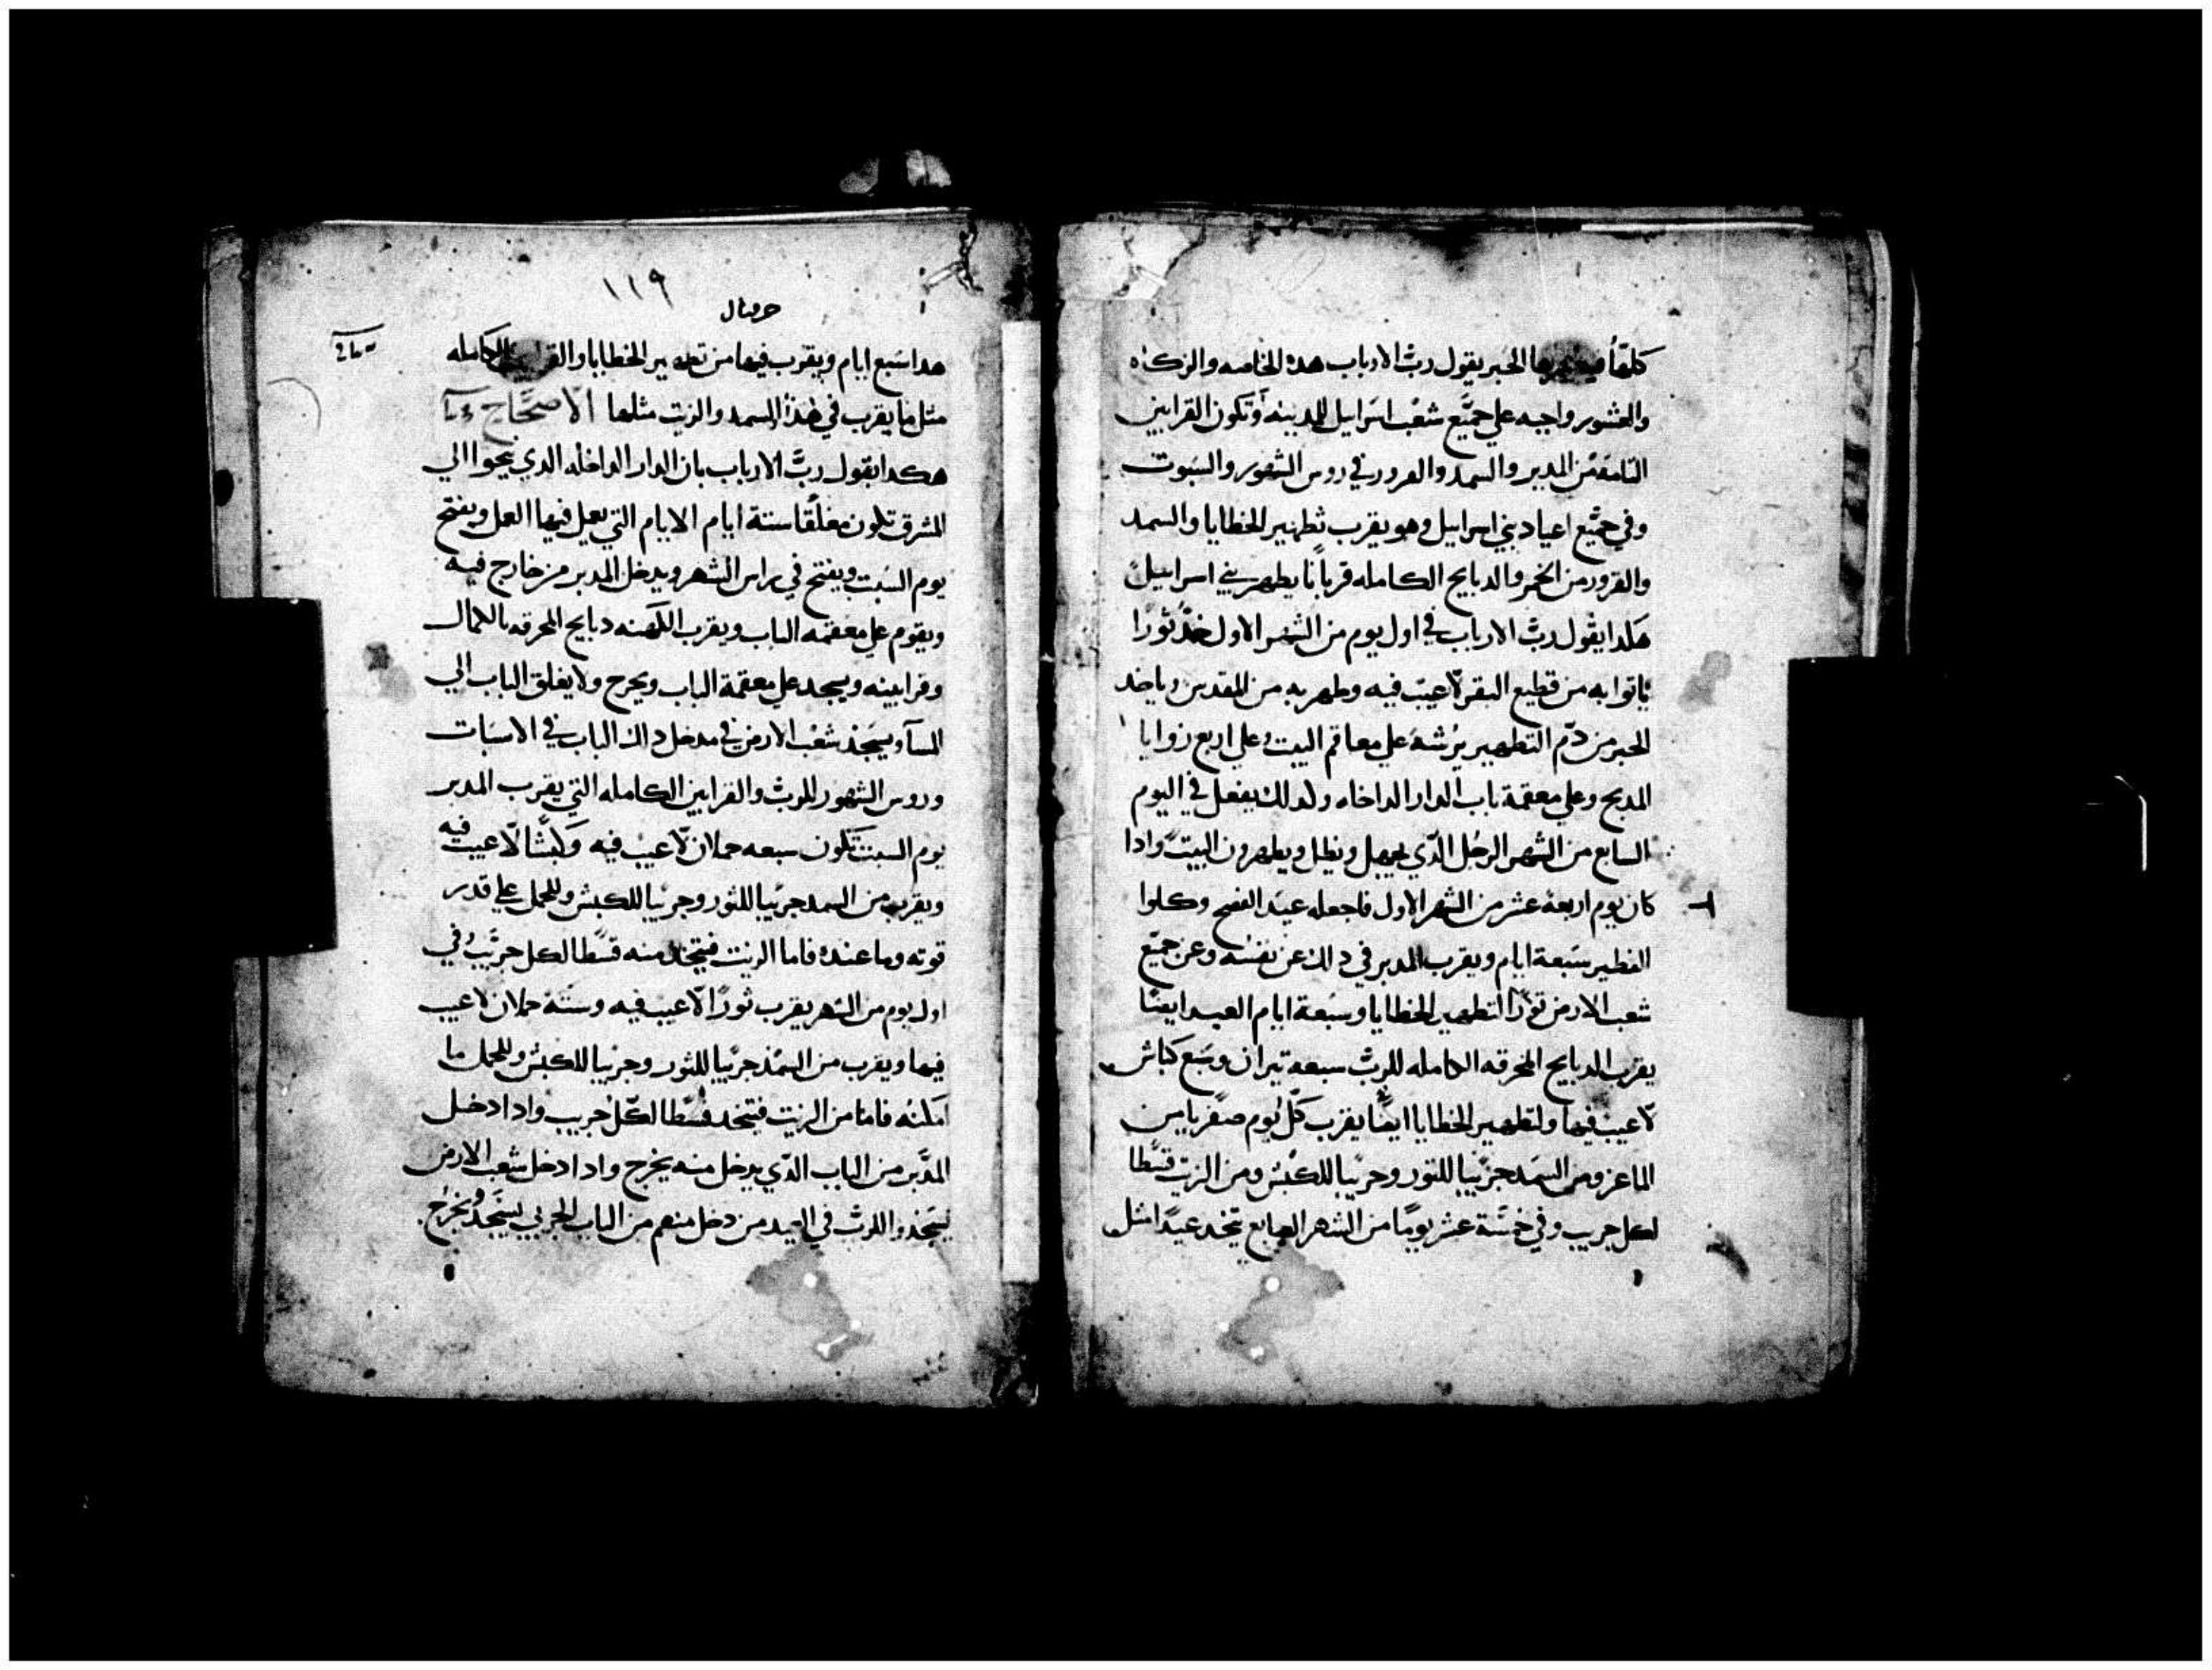 كلها فيه الحبر يقول رب الارباب هده الخاصه والزكاه
والعشور واجبه علي جميع شعب اسراييل للمدينه وتكون القرابين
التامه من المدبر والسمد والعرور في روس الشهور والسبوت
وفي جميع اعياد بني اسراييل وهو يقرب تطهير الخطايا والسمد
والقرور من الخمر والدبايح الكامله قربانا يطهر بني اسراييل
هكدا يقول رب الارباب في اول يوم من الشهر الاول خد ثورا
ياتوا به من قطيع البقر لا عيب فيه وطهر به من المقدس وياخد
الحبر من دم التطهير يرشه علي معاقم البيت وعلي اربع زوايا
المدبح وعلي معقمة باب الدار الداخله ولدلك يفعل في اليوم
السابع من الشهر الرجل الدي يجهل ويظل ويطهرون البيت وادا
كان يوم اربعة عشر من الشهر الاول فاجعله عيد الفصح وكلوا
الفطير سبعة ايام ويقرب المدبر في دلك عن نفسه وعن جميع
شعب الارض ثورا لتطهير الخطايا وسبعة ايام العيد ايضا
يقرب الدبايح المحرقه الكامله للرب سبعه تيران وسبع كباش
لا عيب فيها ولتطهير الخطايا ايضا يقرب كل يوم صفريا من
الماعز ومن السمد جريبا للتور وجريبا للكبش ومن الزيت قسطا
لكل جريب وفي خمسة عشر يوما من الشهر السابع تتخد عيدا مثل
١١٩
حزقيال
هدا سبع ايام ويقرب فيها من تطهير الخطايا والقرابين الكامله
مثل ما يقرب في هذا السمد والزيت مثلها الاصحاح
هكدا يقول رب الارباب بان الدار الداخله الدي نحوا الي
المشرق تكون مغلقا ستة ايام الايام التي يعمل فيها العمل ويفتح
يوم السبت ويفتح في راس الشهر ويدخل المدبر من خارج فيه
ويقوم علي معقمه الباب ويقرب الكهنه دبايح المحرقه بالكمال
وقرابينه ويسجد علي معقمة الباب ويخرج ولا يغلق الباب الي
المسآ ويسجد شعب الارض في مدخل دلك الباب في الاسبات
وروس الشهور للرب والقرابين الكامله التي يقرب المدبر
يوم السبت تكون سبعه حملان لا عيب فيه وكبشا لا عيب فيه
ويقرب من السمد جريبا للثور وجريبا للكبش وللحمل علي قدر
قوته وما عنده فاما الزيت فيتخد منه قسطا لكل جريب وفي
اول يوم من الشهر يقرب ثورا لا عيب فيه وستة حملان لا عيب
فيها ويقرب من السمد جريبا للثور وجريبا للكبش وللحمل ما
امكنه فاما من الزيت فيتخد قسطا لكل جريب وادا دخل
المدبر من الباب الدي يدخل منه يخرج وادا دخل شعب الارض
ليسجدوا للرب في العيد من دخل منهم من الباب الجربي ليسجد يخرج